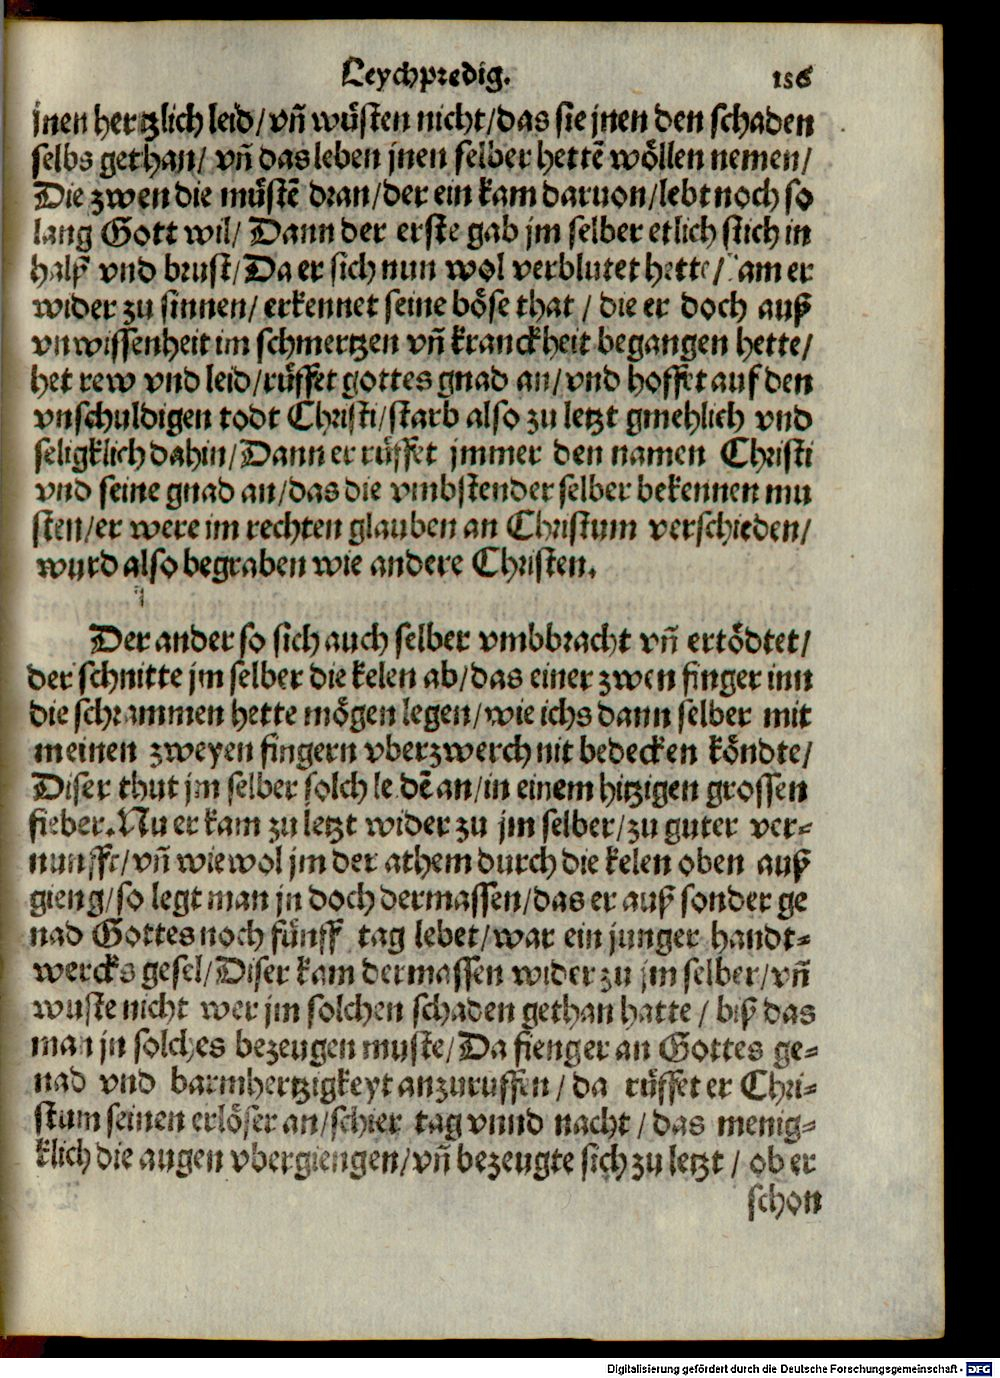 Leychpredig. 156
jnen hertzlich leid/ vñ wüsten nicht/ das sie jnen den schaden
selbs gethan/ vñ das leben jnen selber hettē wöllen nemen/
Die zwen die müstē dran/ der ein kam daruon/ lebt noch so
lang Gott wil/ Dann der erste gab jm selber etlich stich in
halß vnd brust/ Da er sich nun wol verblutet hette/ kam er
wider zu sinnen/ erkennet seine böse that / die er doch auß
vnwissenheit im schmertzen vñ kranckheit begangen hette/
het rew vnd leid/ rüffet gottes gnad an/ vnd hoffet auf den
vnschuldigen todt Christi/ starb also zu letzt gmehlich vnd
seligklich dahin/ Dann er rüffet jmmer den namen Christi
vnd seine gnad an/ das die vmbstender selber bekennen mu
sten/ er were im rechten glauben an Christum verschieden/
wurd also begraben wie andere Christen.
Der ander so sich auch selber vmbbracht vñ ertödtet/
der schnitte jm selber die kelen ab/ das einer zwen finger inn
die schrammen hette mögen legen/ wie ichs dann selber mit
meinen zweyen fingern vberzwerch nit bedecken köndte/
Diser thut jm selber solch leidē an/ in einem hitzigen grossen
fieber. Nu er kam zu letzt wider zu jm selber/ zu guter ver-
nunfft/ vñ wiewol jm der athem durch die kelen oben auß
gieng/ so legt man jn doch dermassen/ das er auß sonder ge
nad Gottes noch fünff tag lebet/ war ein junger handt-
wercks gesel/ Diser kam dermassen wider zu jm selber/ vñ
wuste nicht wer jm solchen schaden gethan hatte / biß das
man jn solches bezeugen muste/ Da fieng er an Gottes ge-
nad vnd barmhertzigkeyt anzuruffen / da rüffet er Chri-
stum seinen erlöser an/ schier tag vnnd nacht / das menig-
klich die augen vbergiengen/ vñ bezeugte sich zu letzt / ob er
schon
Digitalisierung gefördert durch die Deutsche Forschungsgemeinschaft - DFG